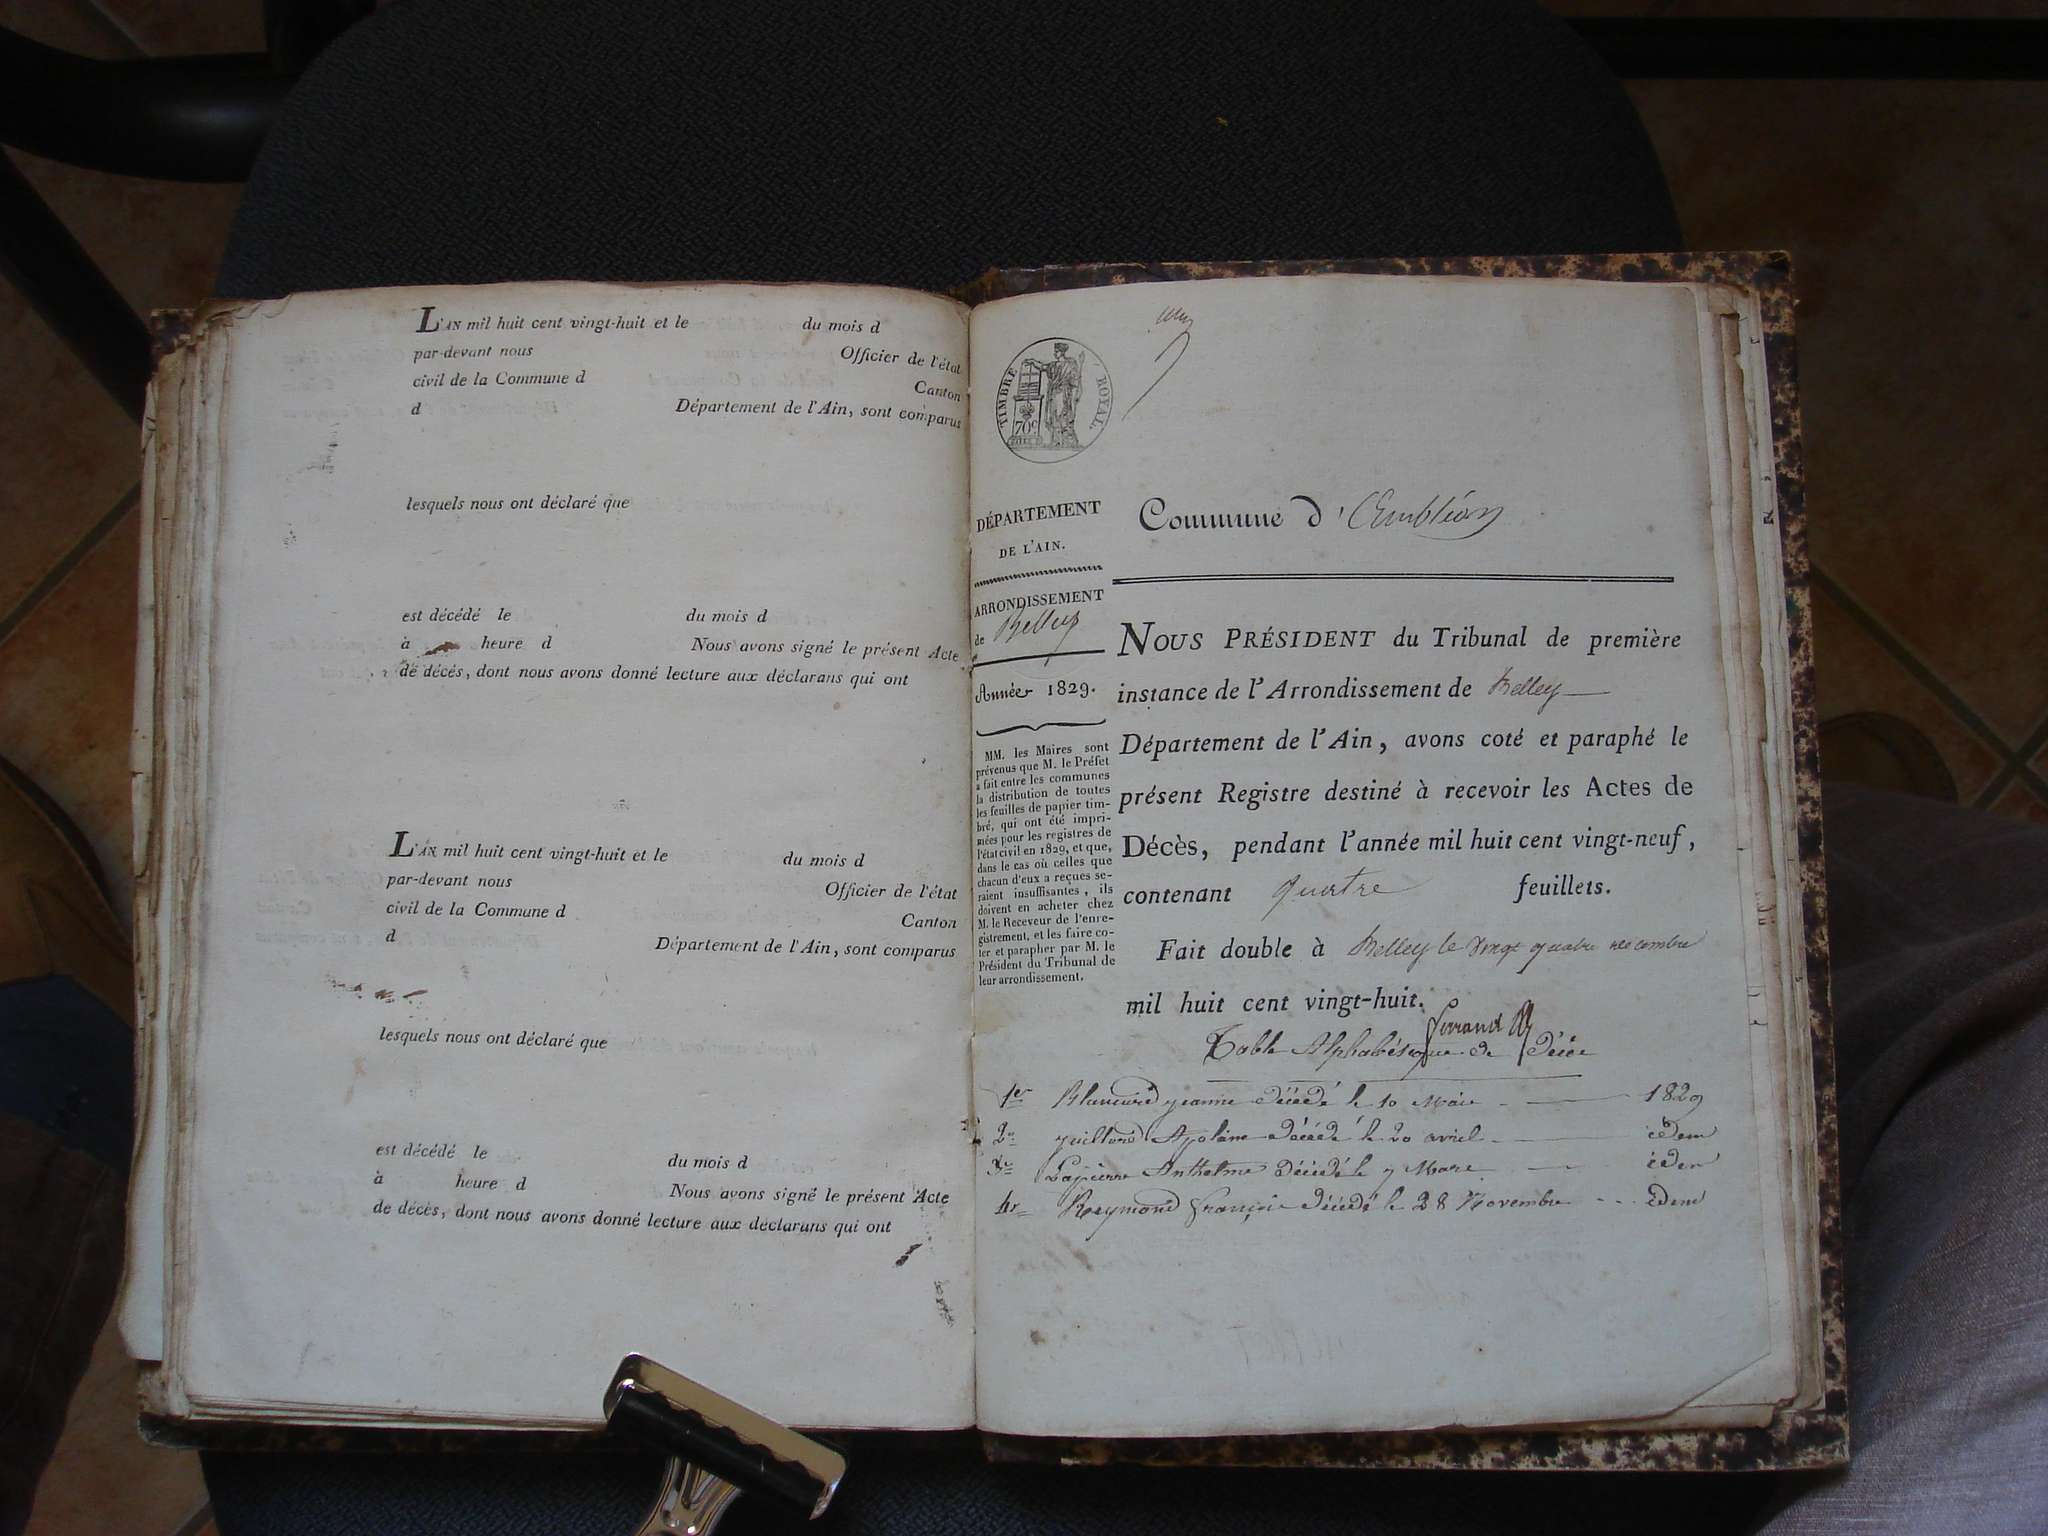 L'AN mil huit cent vingt-huit et le du mois d
par-devant nous Officier de l'état
civil de la Commune d Canton
d Département de l'Ain, sont comparus
lesquels nous ont déclaré que
est décédé le du mois d
à heure d Nous avons signé le présent Acte
de décès, dont nous avons donné lecture aux déclarans qui ont
L'AN mil huit cent vingt-huit et le du mois d
par-devant nous Officier de l'état
civil de la Commune d Canton
d Département de l'Ain, sont comparus
lesquels nous ont déclaré que
est décédé le du mois d
à heure d Nous avons signé le présent Acte
de décès, dont nous avons donné lecture aux déclarans qui ont
TIMBRE ROYAL.
70c
DÉPARTEMENT
DE L'AIN.
ARRONDISSEMENT
de Belley
Année 1829.
MM. les Maires sont
prévenus que M. le Préfet
a fait entre les communes
la distribution de toutes
les feuilles de papier tim-
bré, qui ont été impri-
mées pour les registres de
l'état civil en 1829, et que,
dans le cas où celles que
chacun d'eux a reçues se-
raient insuffisantes, ils
doivent en acheter chez
M. le Receveur de l'enre-
gistrement, et les faire co-
ter et parapher par M. le
Président du Tribunal de
leur arrondissement.
Commune d'Ambléon
NOUS PRÉSIDENT du Tribunal de première
instance de l'Arrondissement de Belley
Département de l'Ain, avons coté et paraphé le
présent Registre destiné à recevoir les Actes de
Décès, pendant l'année mil huit cent vingt-neuf,
contenant quatre feuillets.
Fait double à Belley le vingt quatre decembre
mil huit cent vingt-huit.
Table Alphabétique de Décès
1er jeanne décédé le 10 1829
2e décédé le 20 avril idem
3e Lapierre Anthelme décédé le 7 Mars idem
4e Reymond françois décédé le 28 Novembre idem